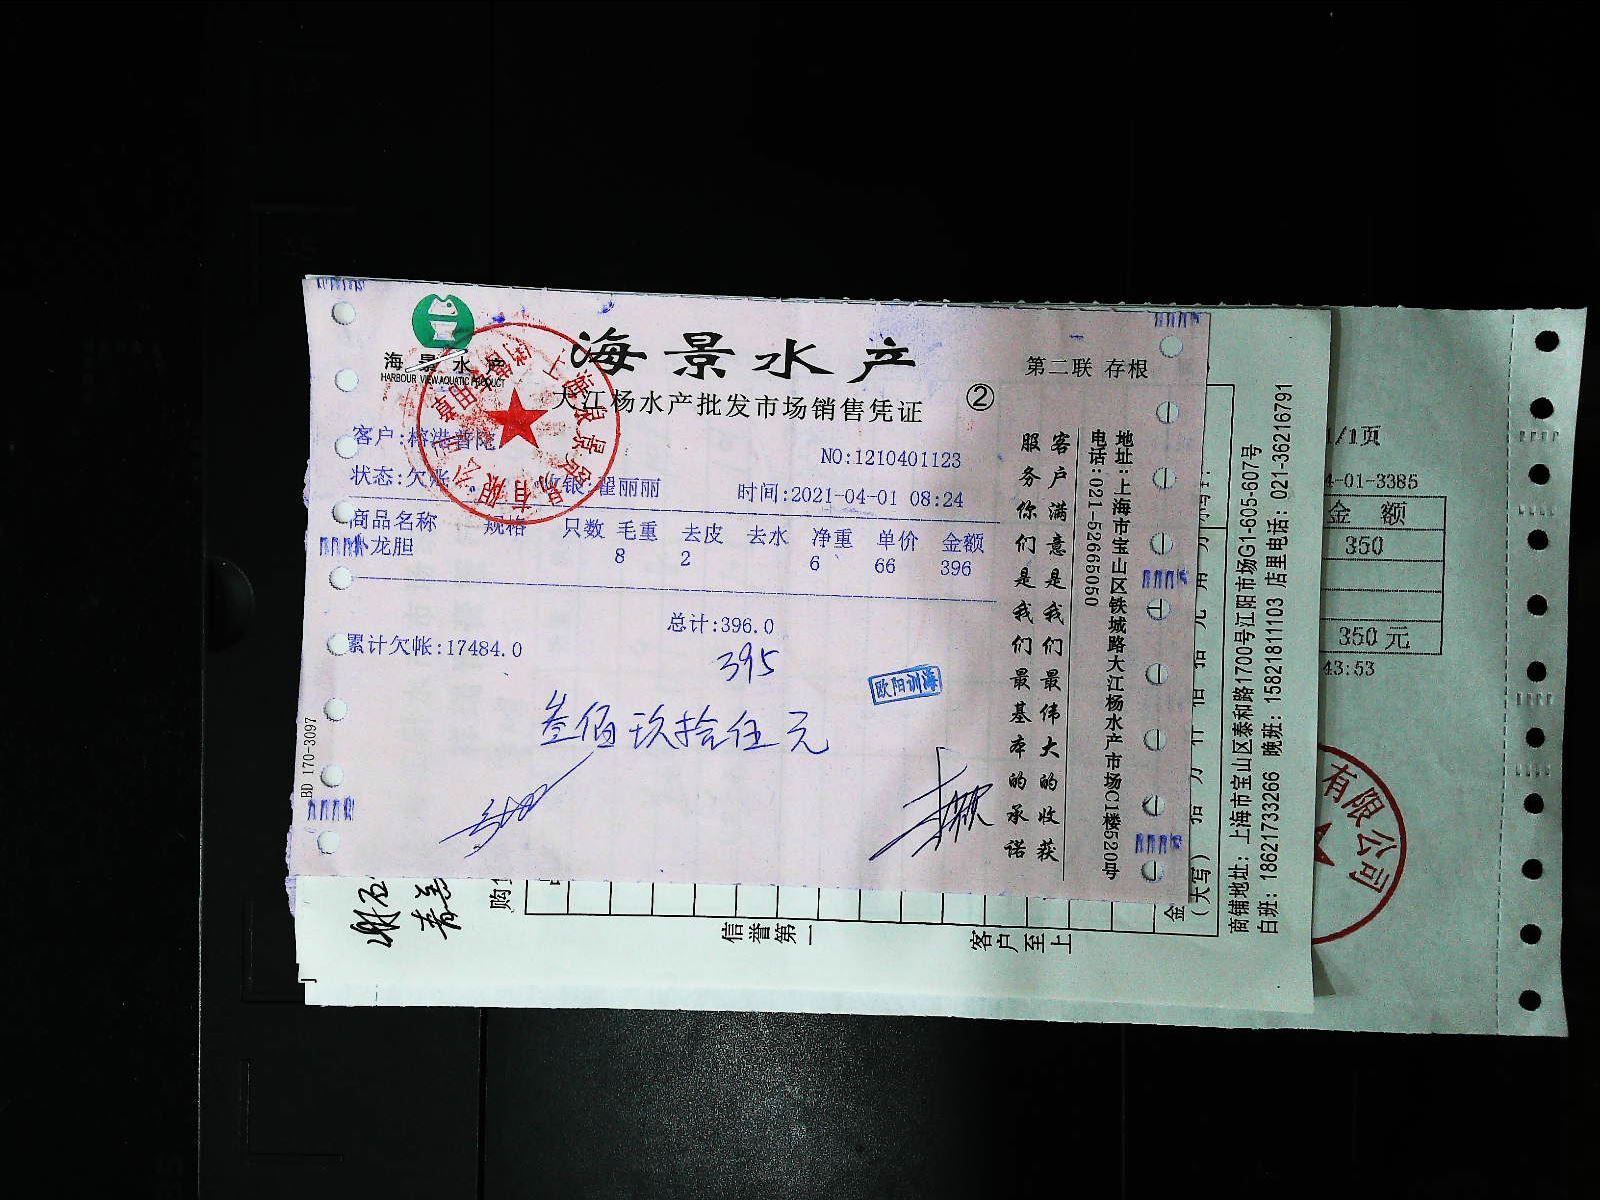 海景水产
HARBOUR VIEW AQUATIC PRODUCT
海景水产
第二联 存根
大江杨水产批发市场销售凭证
②
NO:1210401123
状态:欠账
收银:翟丽丽
时间:2021-04-01 08:24
商品名称 规格 只数 毛重 去皮 去水 净重 单价 金额
小龙胆 8 2 6 66 396
总计:396.0
累计欠帐:17484.0
395
叁佰玖拾伍元
欧阳训海
BD 170-3097
客户满意是我们最伟大的收获
服务你们是我们最基本的承诺
地址:上海市宝山区铁城路大江杨水产市场C1楼520号
电话:021-52665050
购
信誉第一
客户至上
金
(大写)
商铺地址:上海市宝山区泰和路1700号江阳市场G1-605-607号
白班:18621733266 晚班:15821811103 店里电话:021-36216791
1/1页
4-01-3385
金 额
350
350 元
43:53
有限公司